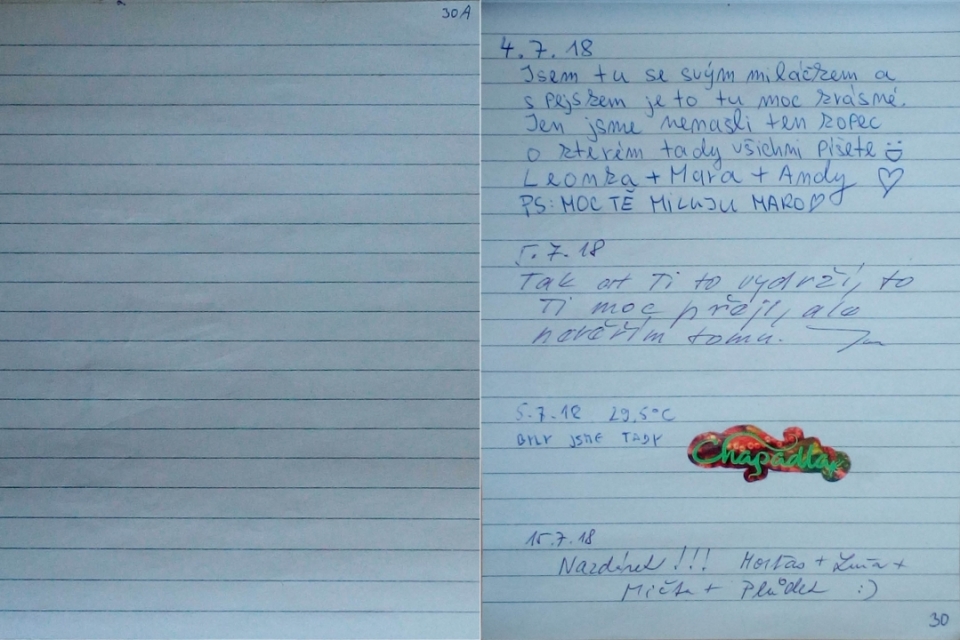 30A
4.7.18
Jsem tu se svým miláčkem a
s pejskem je to tu moc krásné.
Jen jsme nenašli ten kopec
o kterém tady všichni píšete
Leonka + Mára + Andy ♡
PS: MOC TĚ MILUJU MARO♡
5.7.18
Tak ať Ti to vydrží, to
Ti moc přeji, ale
nevěřím tomu.
5.7.18 29,5°C
BYLY JSME TADY
Chapadla
15.7.18
Nazdárek!!! + +
+ :)
30